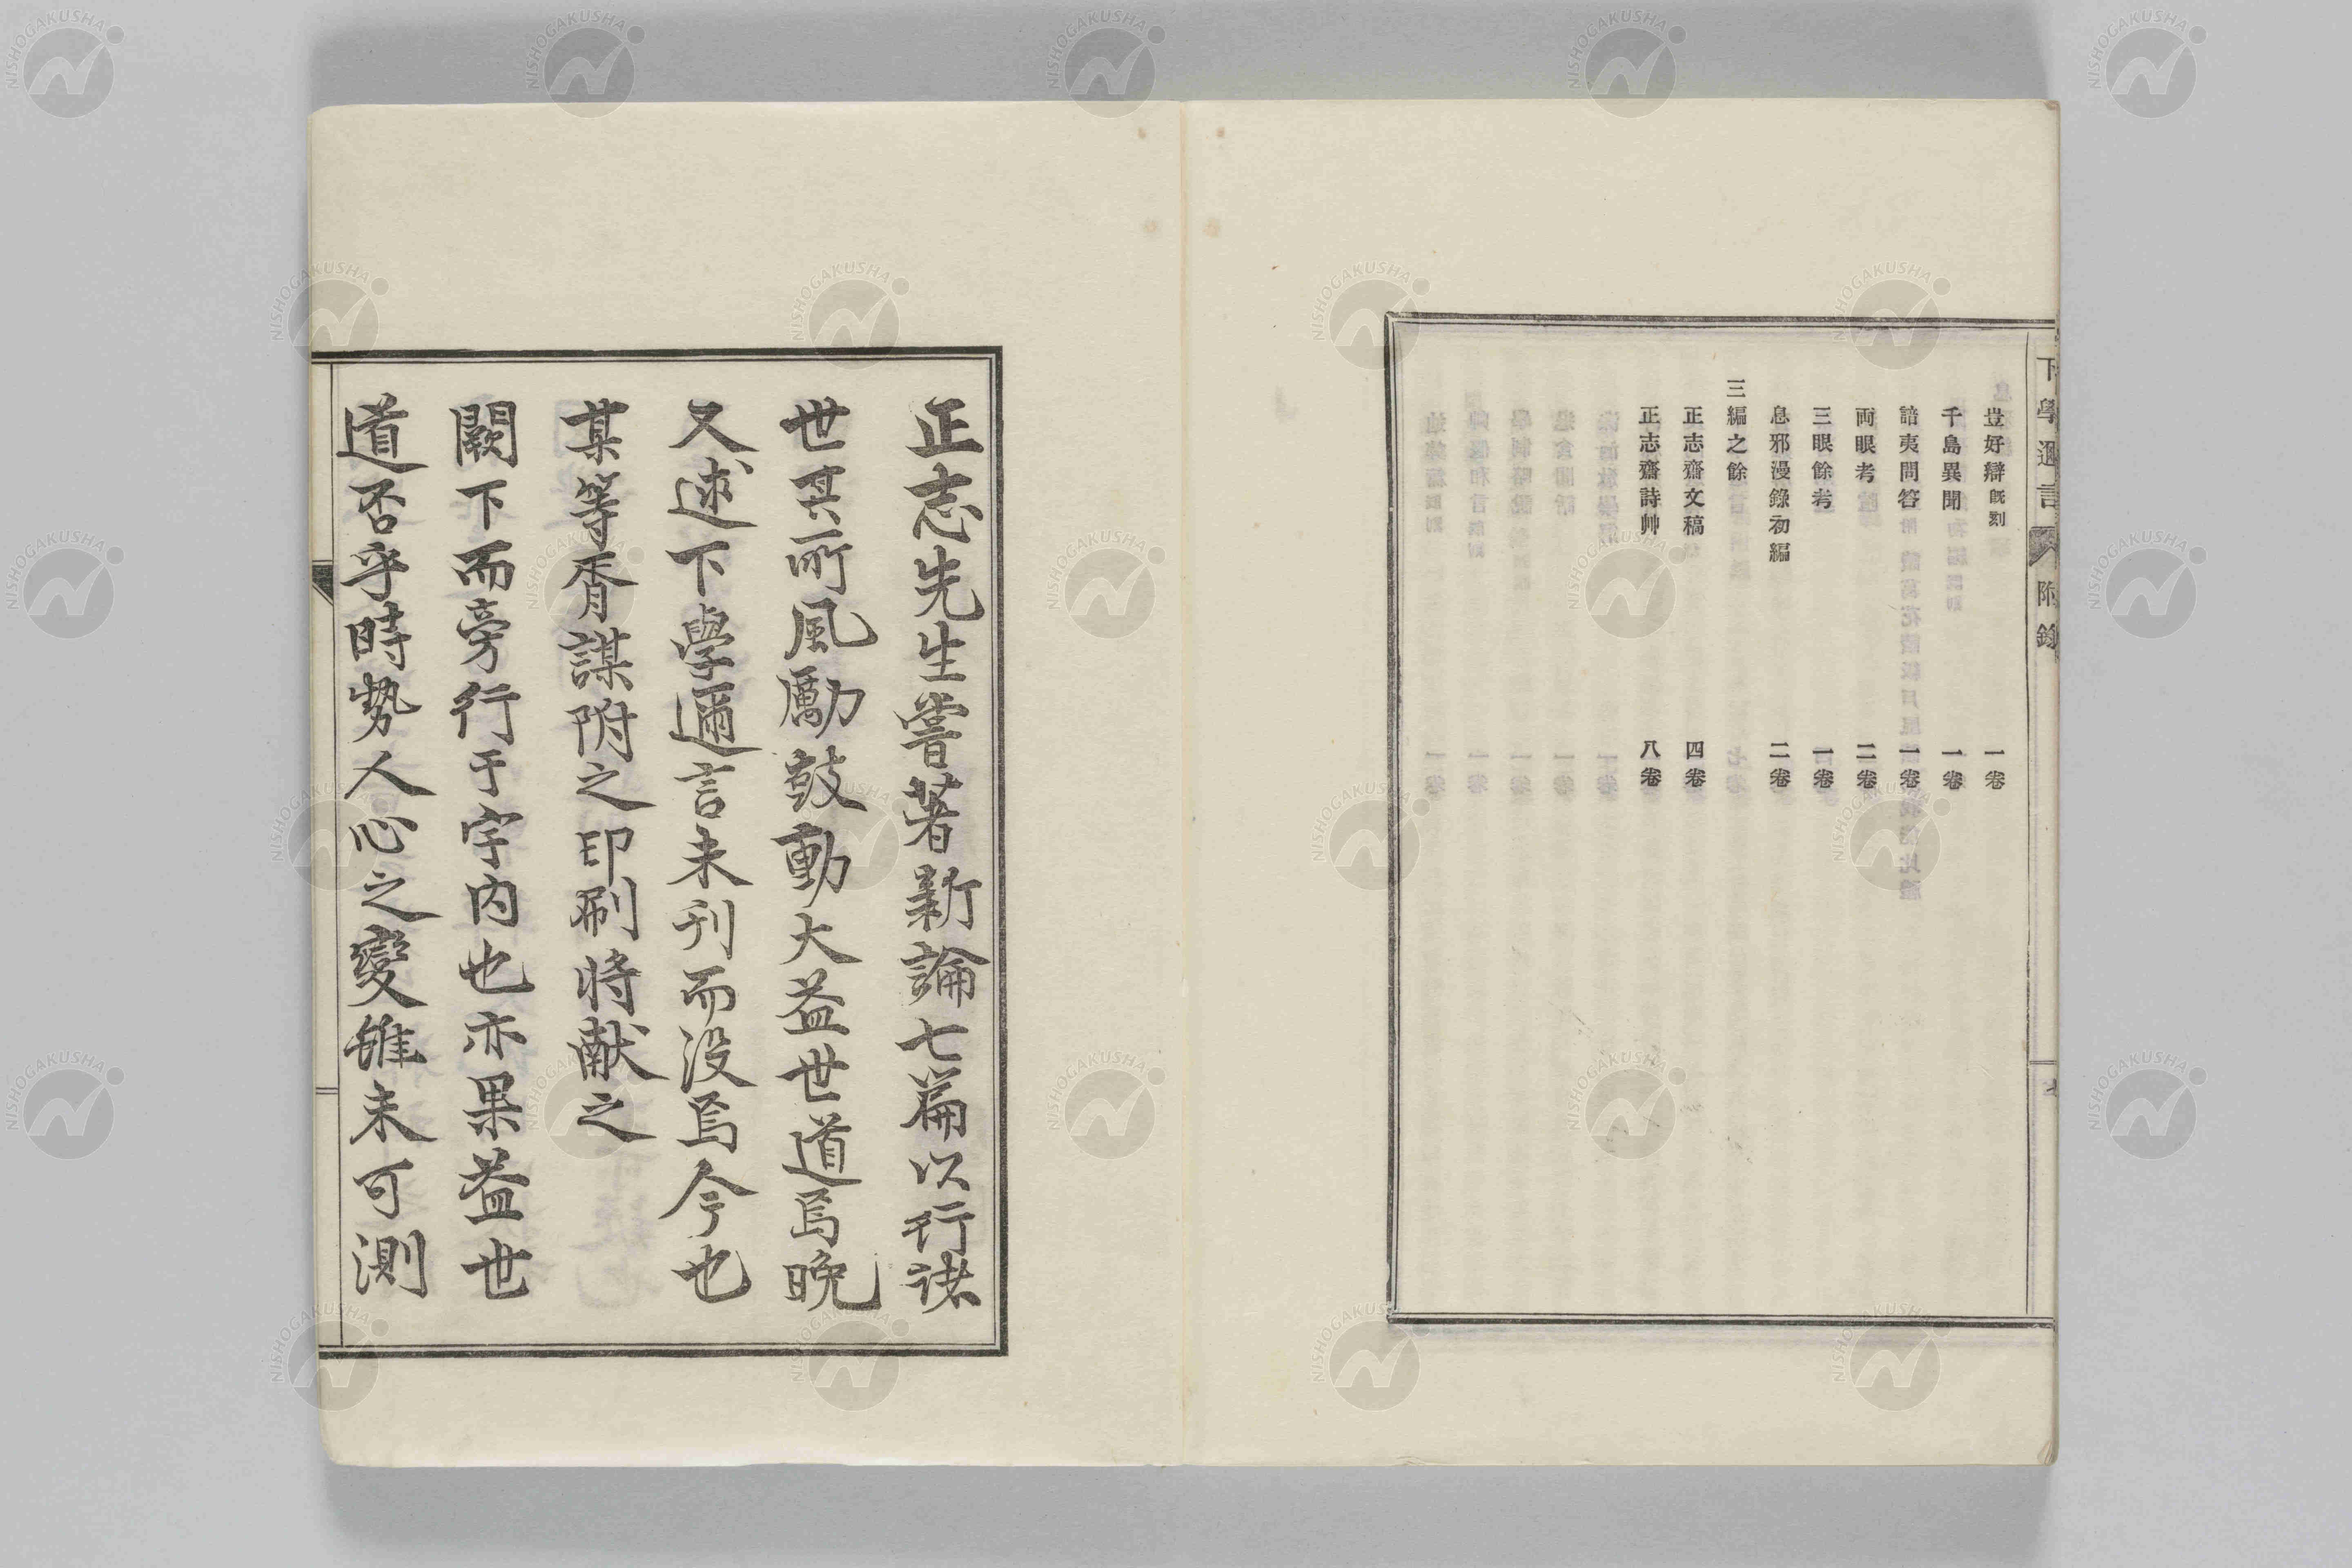 下學邇言 附錄
豈好辯 既刻 一卷
千島異聞 一卷
諳夷問答 一卷
両眼考 二卷
三眼餘考 一卷
息邪漫錄初編 二卷
三編之餘
正志齋文稿 四卷
正志齋詩艸 八卷
七
正志先生嘗著新論七篇以行諸
世其所風勵鼓動大益世道焉晚
又述下學邇言未刊而没焉今也
某等胥謀附之印刷将献之
闕下而旁行于宇内也亦果益世
道否乎時勢人心之變雖未可測
NISHOGAKUSHA